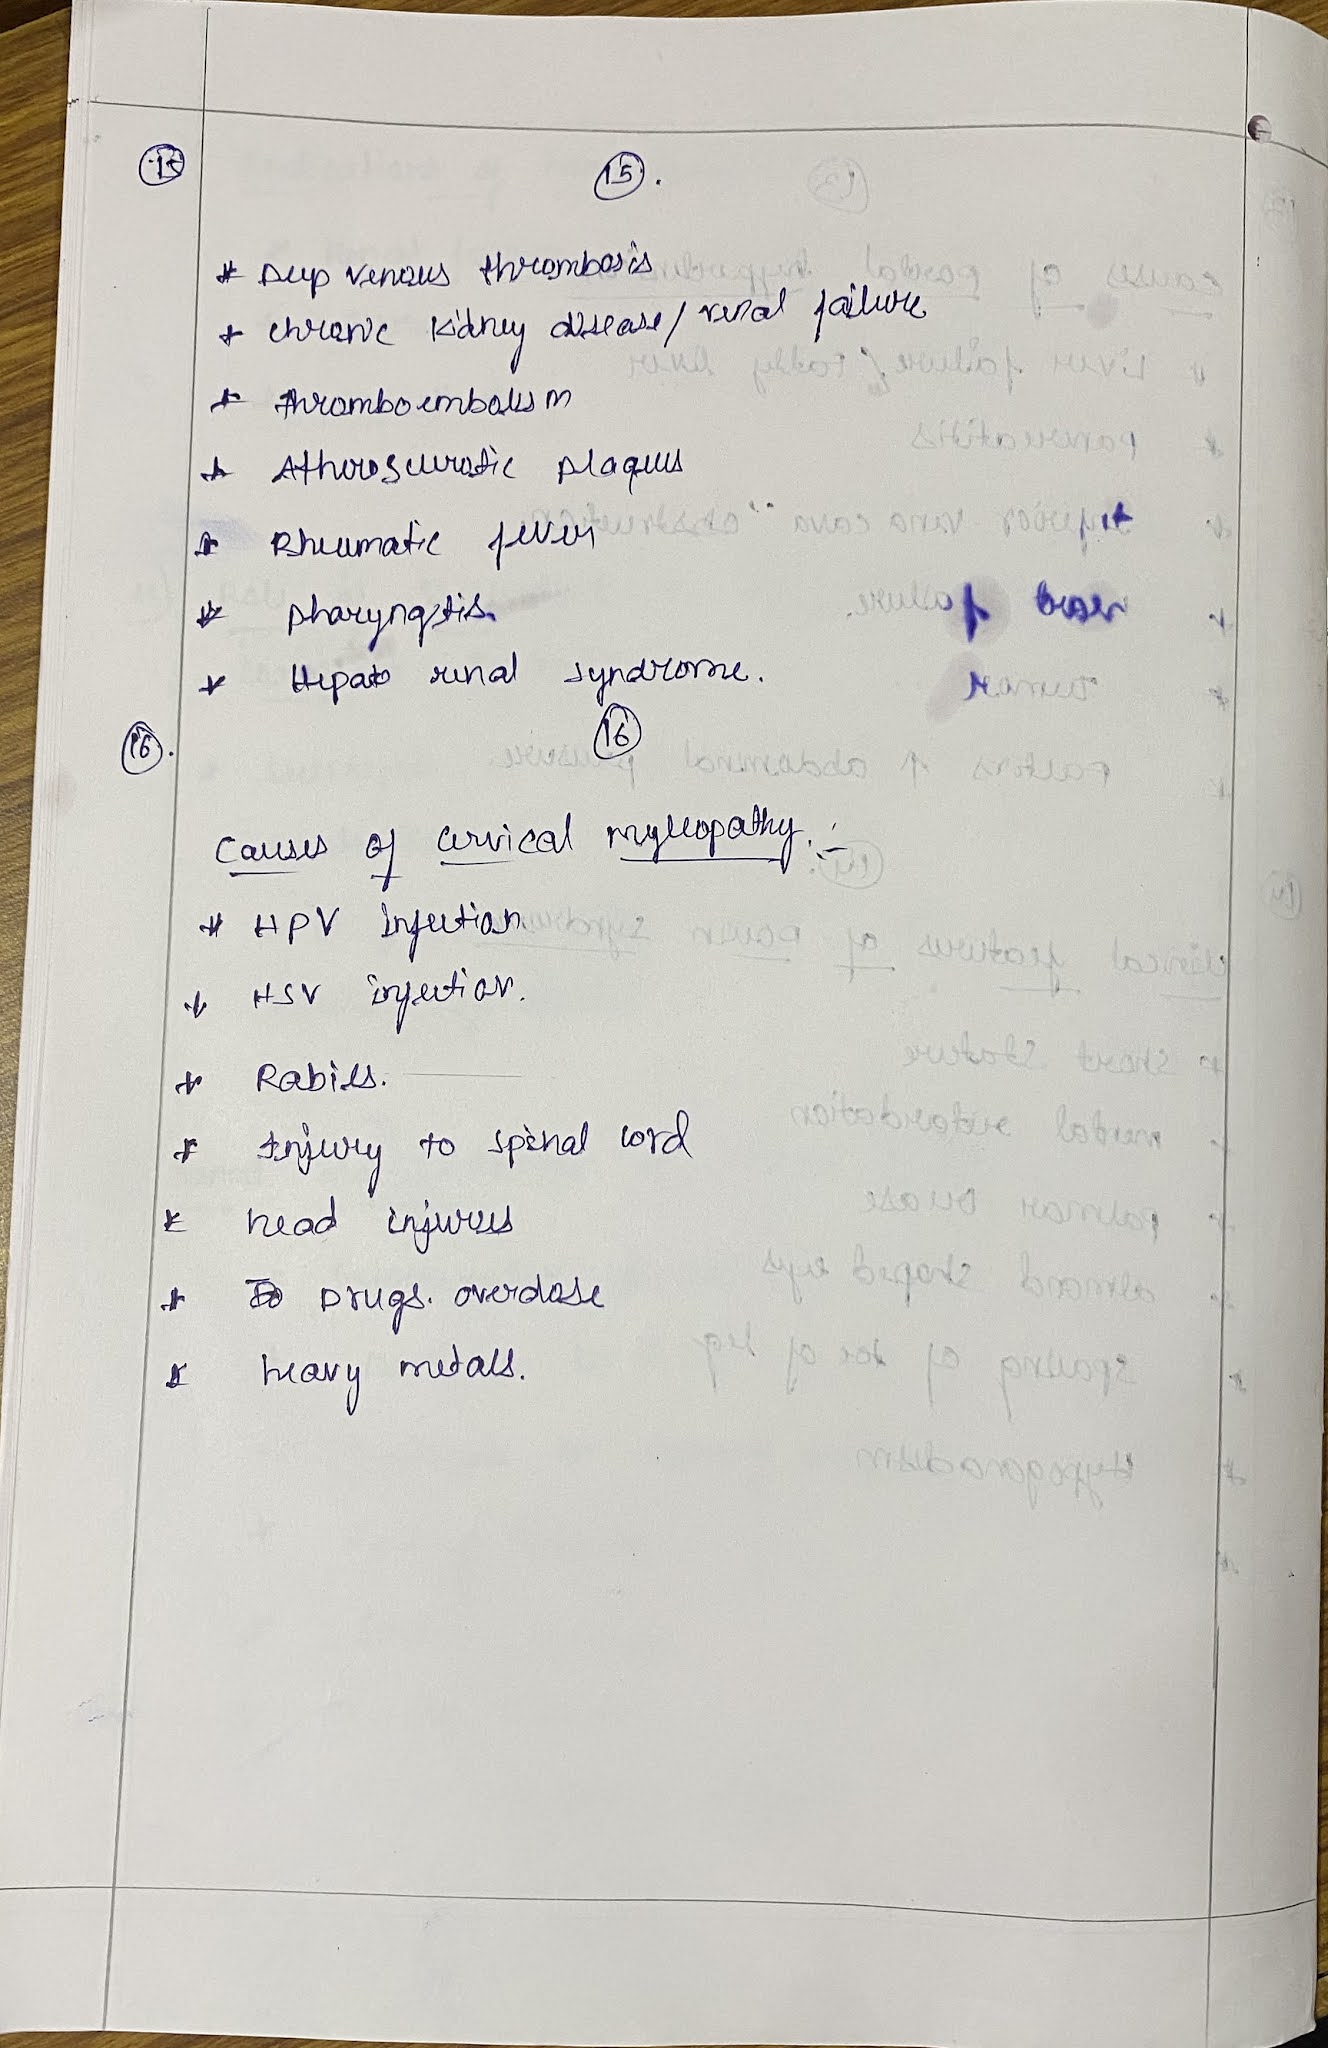 15 15.
* Deep venous thrombosis
* chronic kidney disease / renal failure
* thromboembolism
* Atherosclerotic plaques
* Rheumatic fever
* pharyngtis.
* Hepato renal syndrome.
16. 16
Causes of cervical myleopathy :-
* HPV infection
* HSV infection.
* Rabies.
* Injury to spinal cord
* head injures
* Drugs. overdose
* heavy metals.